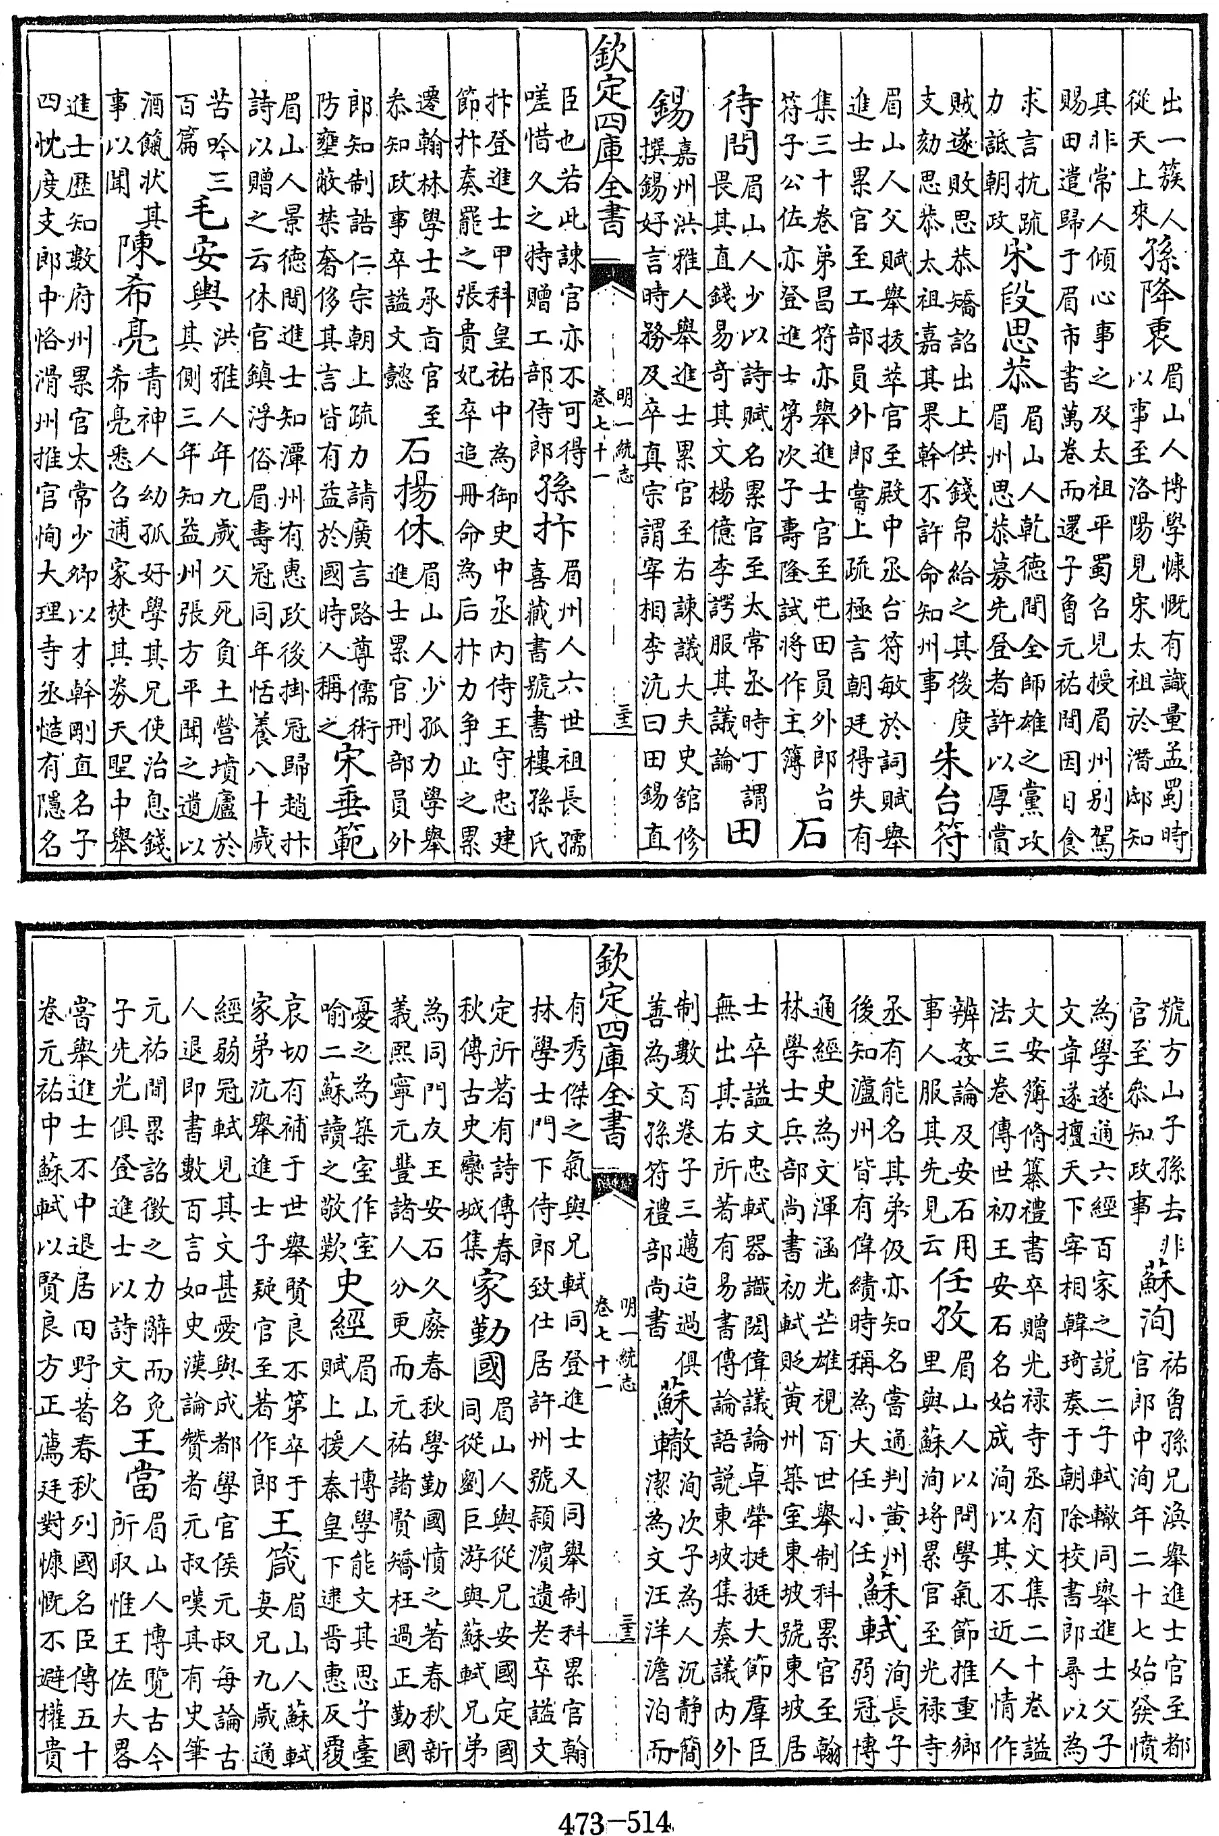 出一簇人
從天上來
孫降衷
眉山人博學慷慨有識量孟蜀時
以事至洛陽見宋太祖於潛邸知
其非常人傾心事之及太祖平蜀召見授眉州别駕
賜田遣歸于眉市書萬卷而還子魯元祐間因日食
求言抗疏
力詆朝政
宋段思恭
眉山人乾德間全師雄之黨攻
眉州思恭募先登者許以厚賞
賊遂敗思恭矯詔出上供錢帛給之其後度
支劾思恭太祖嘉其果幹不許命知州事
朱台符
眉山人父賦舉拔萃官至殿中丞台符敏於詞賦舉
進士累官至工部員外郎嘗上疏極言朝廷得失有
集三十卷弟昌符亦舉進士官至屯田員外郎台
符子公佐亦登進士第次子壽隆試將作主簿
石
待問
眉山人少以詩賦名累官至太常丞時丁謂
畏其直錢易奇其文楊億李諤服其議論
田
錫
嘉州洪雅人舉進士累官至右諫議大夫史舘修
撰錫好言時務及卒真宗謂宰相李沆曰田錫直
欽定四庫全書
明一統志
卷七十一
臣也若此諫官亦不可得
嗟惜久之特贈工部侍郎
孫抃
眉州人六世祖長孺
喜藏書號書樓孫氏
抃登進士甲科皇祐中為御史中丞内侍王守忠建
節抃奏罷之張貴妃卒追冊命為后抃力爭止之累
遷翰林學士承㫖官至
叅知政事卒謚文懿
石揚休
眉山人少孤力學舉
進士累官刑部員外
郎知制誥仁宗朝上疏力請廣言路尊儒術
防壅蔽禁奢侈其言皆有益於國時人稱之
宋垂範
眉山人景德間進士知潭州有惠政後掛冠歸趙抃
詩以贈之云休官鎮浮俗眉壽冠同年恬養八十歲
苦吟三
百篇
毛安輿
洪雅人年九歲父死負土營墳廬於
其側三年知益州張方平聞之遺以
酒饊状其
事以聞
陳希亮
青神人幼孤好學其兄使治息錢
希亮悉召逋家焚其劵天聖中舉
進士歴知數府州累官太常少卿以才幹剛直名子
四忱度支郎中恪滑州推官恂大理寺丞慥有隱名
號方山子孫去非
官至叅知政事
蘇洵
祐曾孫兄渙舉進士官至都
官郎中洵年二十七始發憤
為學遂通六經百家之說二子軾轍同舉進士父子
文章遂擅天下宰相韓琦奏于朝除校書郎尋以為
文安簿脩纂禮書卒贈光禄寺丞有文集二十卷謚
法三卷傳世初王安石名始成洵以其不近人情作
辨姦論及安石用
事人服其先見云
任孜
眉山人以問學氣節推重鄉
里與蘇洵埒累官至光禄寺
丞有能名其弟伋亦知名嘗通判黄州
後知瀘州皆有偉績時稱為大任小任
蘇軾
洵長子
弱冠博
通經史為文渾涵光芒雄視百世舉制科累官至翰
林學士兵部尚書初軾貶黄州築室東坡號東坡居
士卒謚文忠軾器識閎偉議論卓犖挺挺大節羣臣
無出其右所著有易書傳論語説東坡集奏議内外
制數百卷子三邁迨過俱
善為文孫符禮部尚書
蘇轍
洵次子為人沉静簡
潔為文汪洋澹泊而
欽定四庫全書
明一統志
卷七十一
有秀傑之氣與兄軾同登進士又同舉制科累官翰
林學士門下侍郎致仕居許州號潁濱遺老卒謚文
定所著有詩傳春
秋傳古史欒城集
家勤國
眉山人與從兄安國定國
同從劉巨游與蘇軾兄弟
為同門友王安石久廢春秋學勤國憤之著春秋新
義熙寧元豐諸人分更而元祐諸賢矯枉過正勤國
憂之為築室作室
喻二蘇讀之敬歎
史經
眉山人博學能文其思子臺
賦上援秦皇下逮晋惠反覆
哀切有補于世舉賢良不第卒于
家弟沆舉進士子疑官至著作郎
王箴
眉山人蘇軾
妻兄九歲通
經弱冠軾見其文甚愛與成都學官侯元叔每論古
人退即書數百言如史漢論贊者元叔嘆其有史筆
元祐間累詔徵之力辭而免
子先光俱登進士以詩文名
王當
眉山人博覽古今
所取惟王佐大畧
當舉進士不中退居田野著春秋列國名臣傳五十
卷元祐中蘇軾以賢良方正薦廷對慷慨不避權貴
473-514